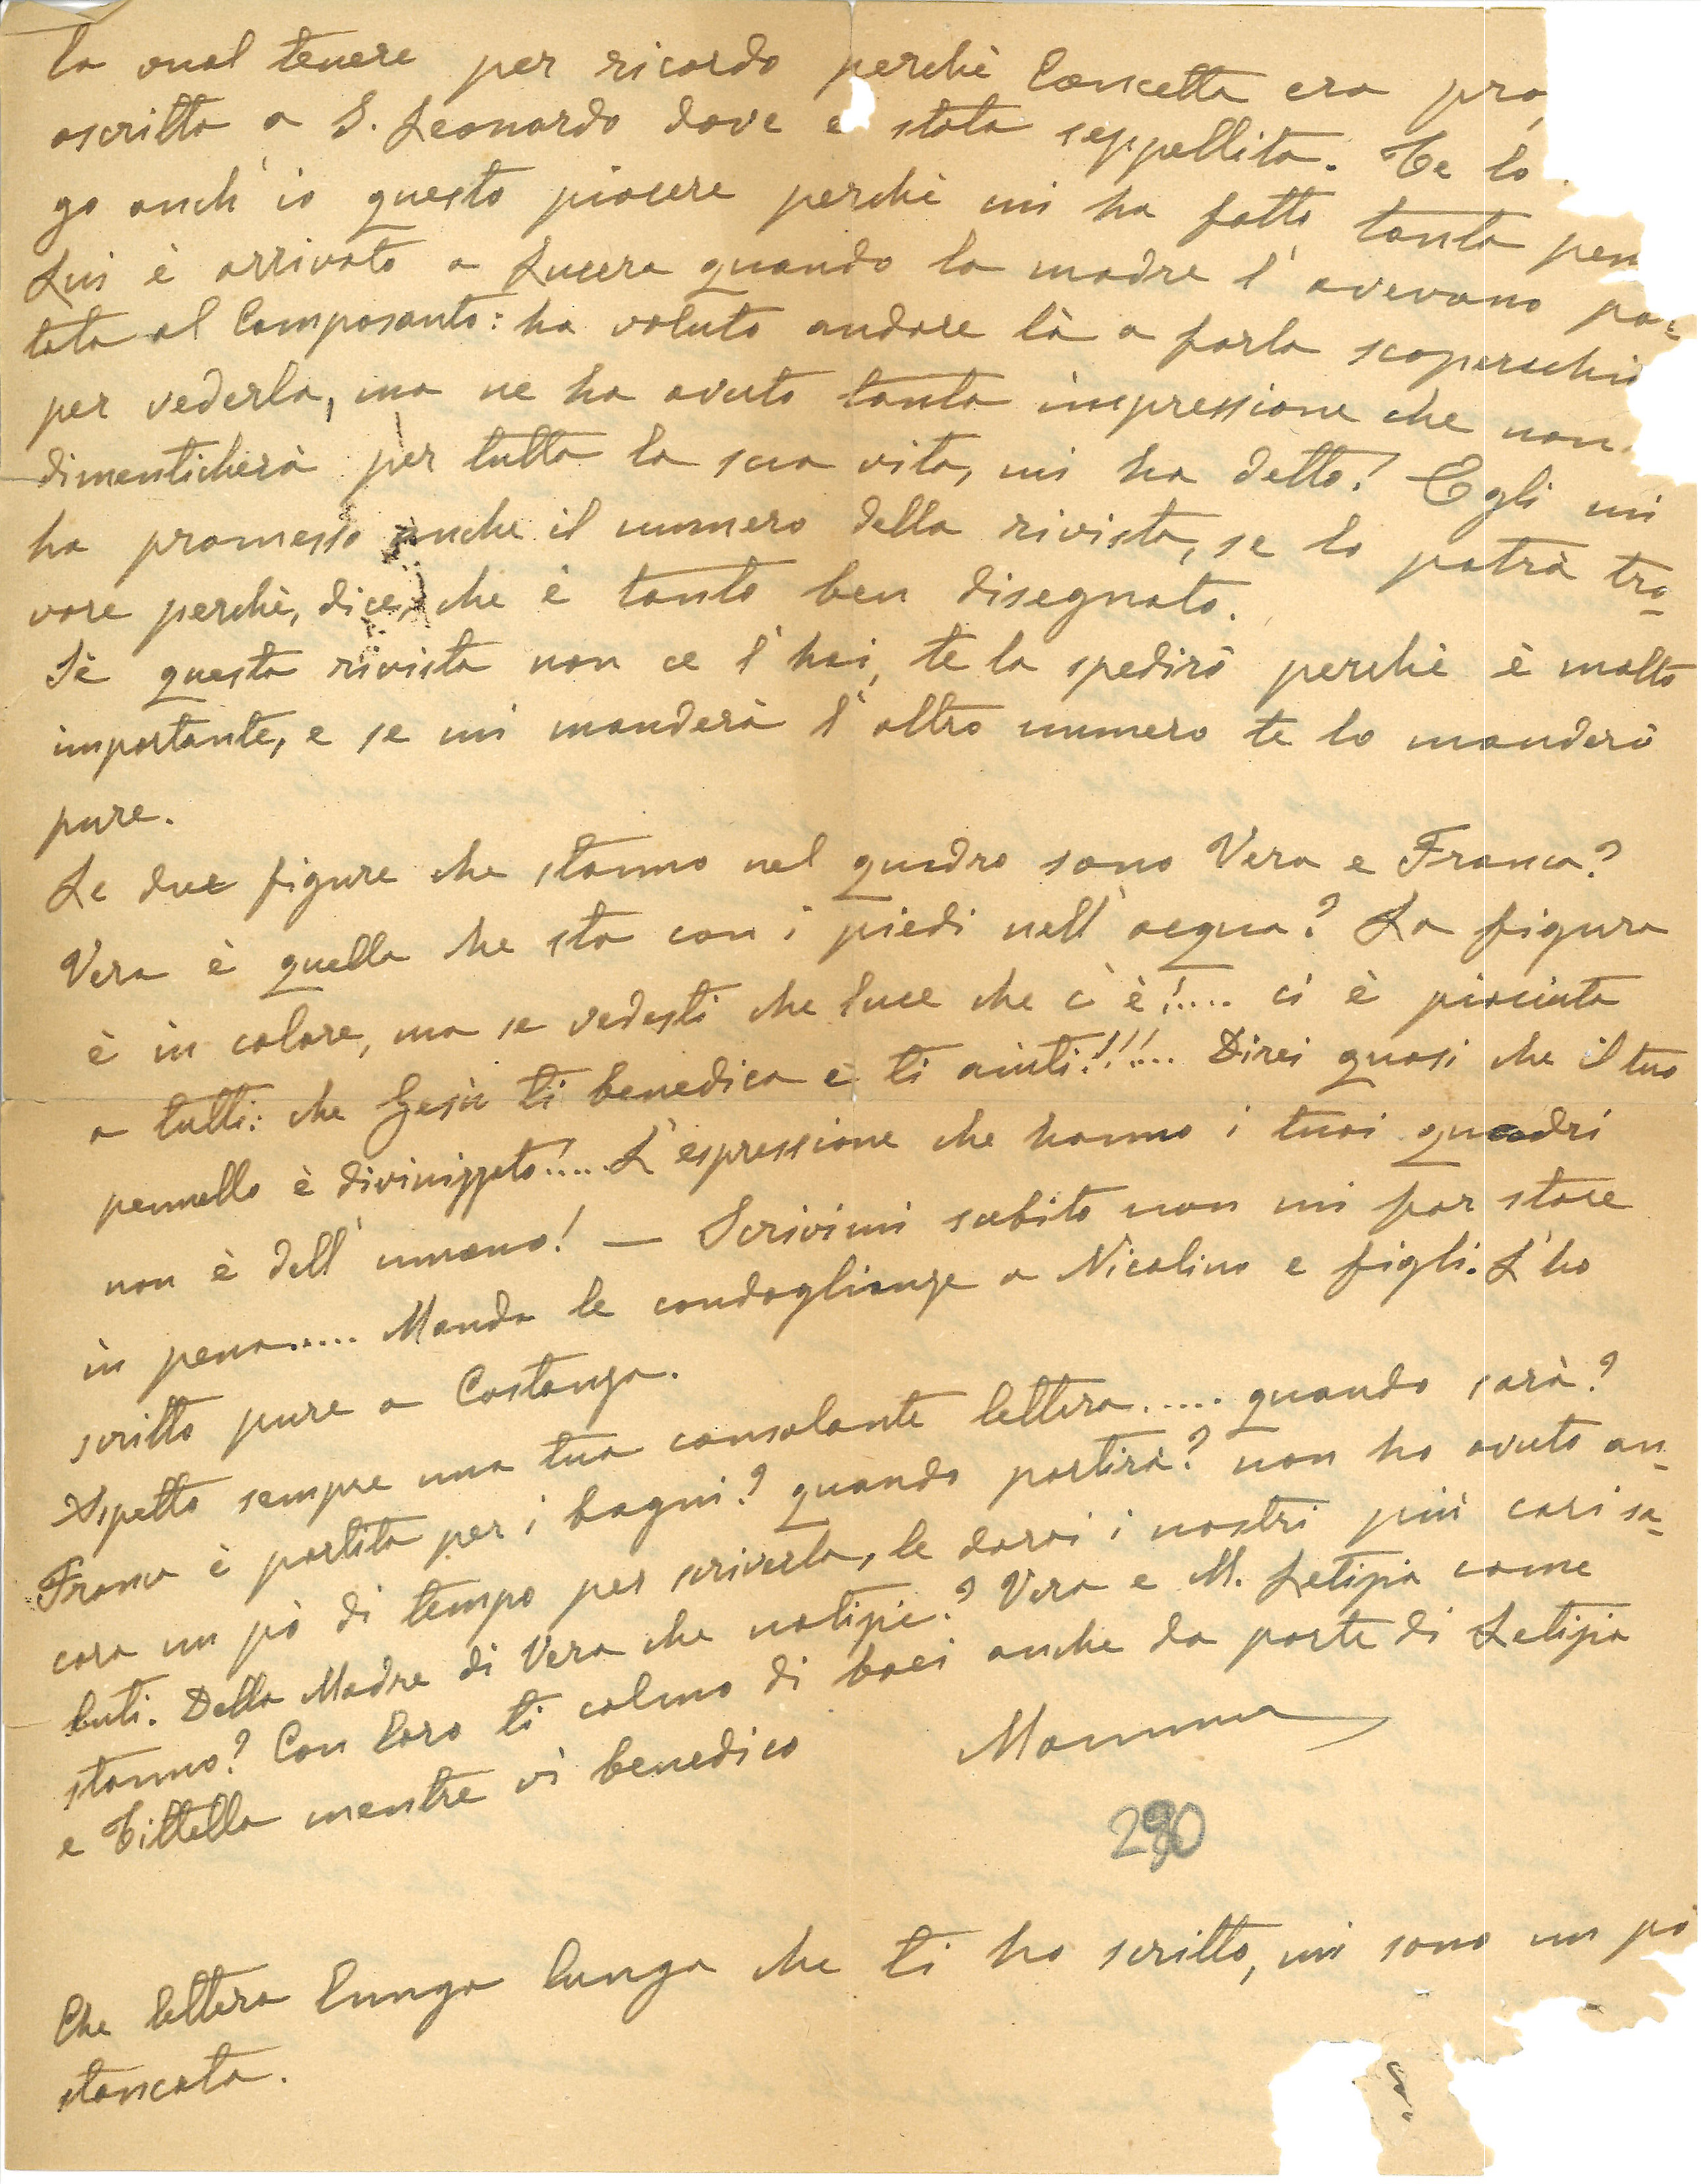 la vuol tenere per ricordo perchè Concetta era pro
ascritta a S. Leonardo dove è stata seppellita. Te lo
go anch'io questo piacere perchè mi ha fatto tanta pen
Lui è arrivato a Lucera quando la madre l'avevano por=
tata al Camposanto: ha voluto andare là a farla scoperchia
per vederla, ma ne ha avuto tanta impressione che non
dimenticherà per tutta la sua vita, mi ha detto! Egli mi
ha promesso anche il numero della rivista, se lo potrà tro-
vare perchè, dice, che è tanto ben disegnato.
Sè questa rivista non ce l'hai, te la spedirò perchè è molto
importante, e se mi manderà l'altro numero te lo manderò
pure.
Le due figure che stanno nel quadro sono Vera e Franca?
Vera è quella che sta con i piedi nell'acqua? La figura
è in colore, ma se vedesti che luce che c'è!.... ci è piaciuta
a tutti: che Gesù ti benedica e ti aiuti!!!... Direi quasi che il tuo
pennello è divinizzato!.... L'espressione che hanno i tuoi quadri
non è dell'umano! — Scrivimi subito non mi far stare
in pena..... Manda le condoglianze a Nicolino e figli. L'ho
scritto pure a Costanza.
Aspetto sempre una tua consolante lettera...... quando sarà?
Franca è partita per i bagni? quando partirà? non ho avuto an-
cora un pò di tempo per scriverla, le darai i nostri più cari sa-
luti. Della Madre di Vera che notizie? Vera e M. Letizia come
stanno? Con loro ti colmo di baci anche da parte di Letizia
e Tittella mentre vi benedico
Mamma
290
Che lettera lunga lunga che ti ho scritto, mi sono un pò
stancata.